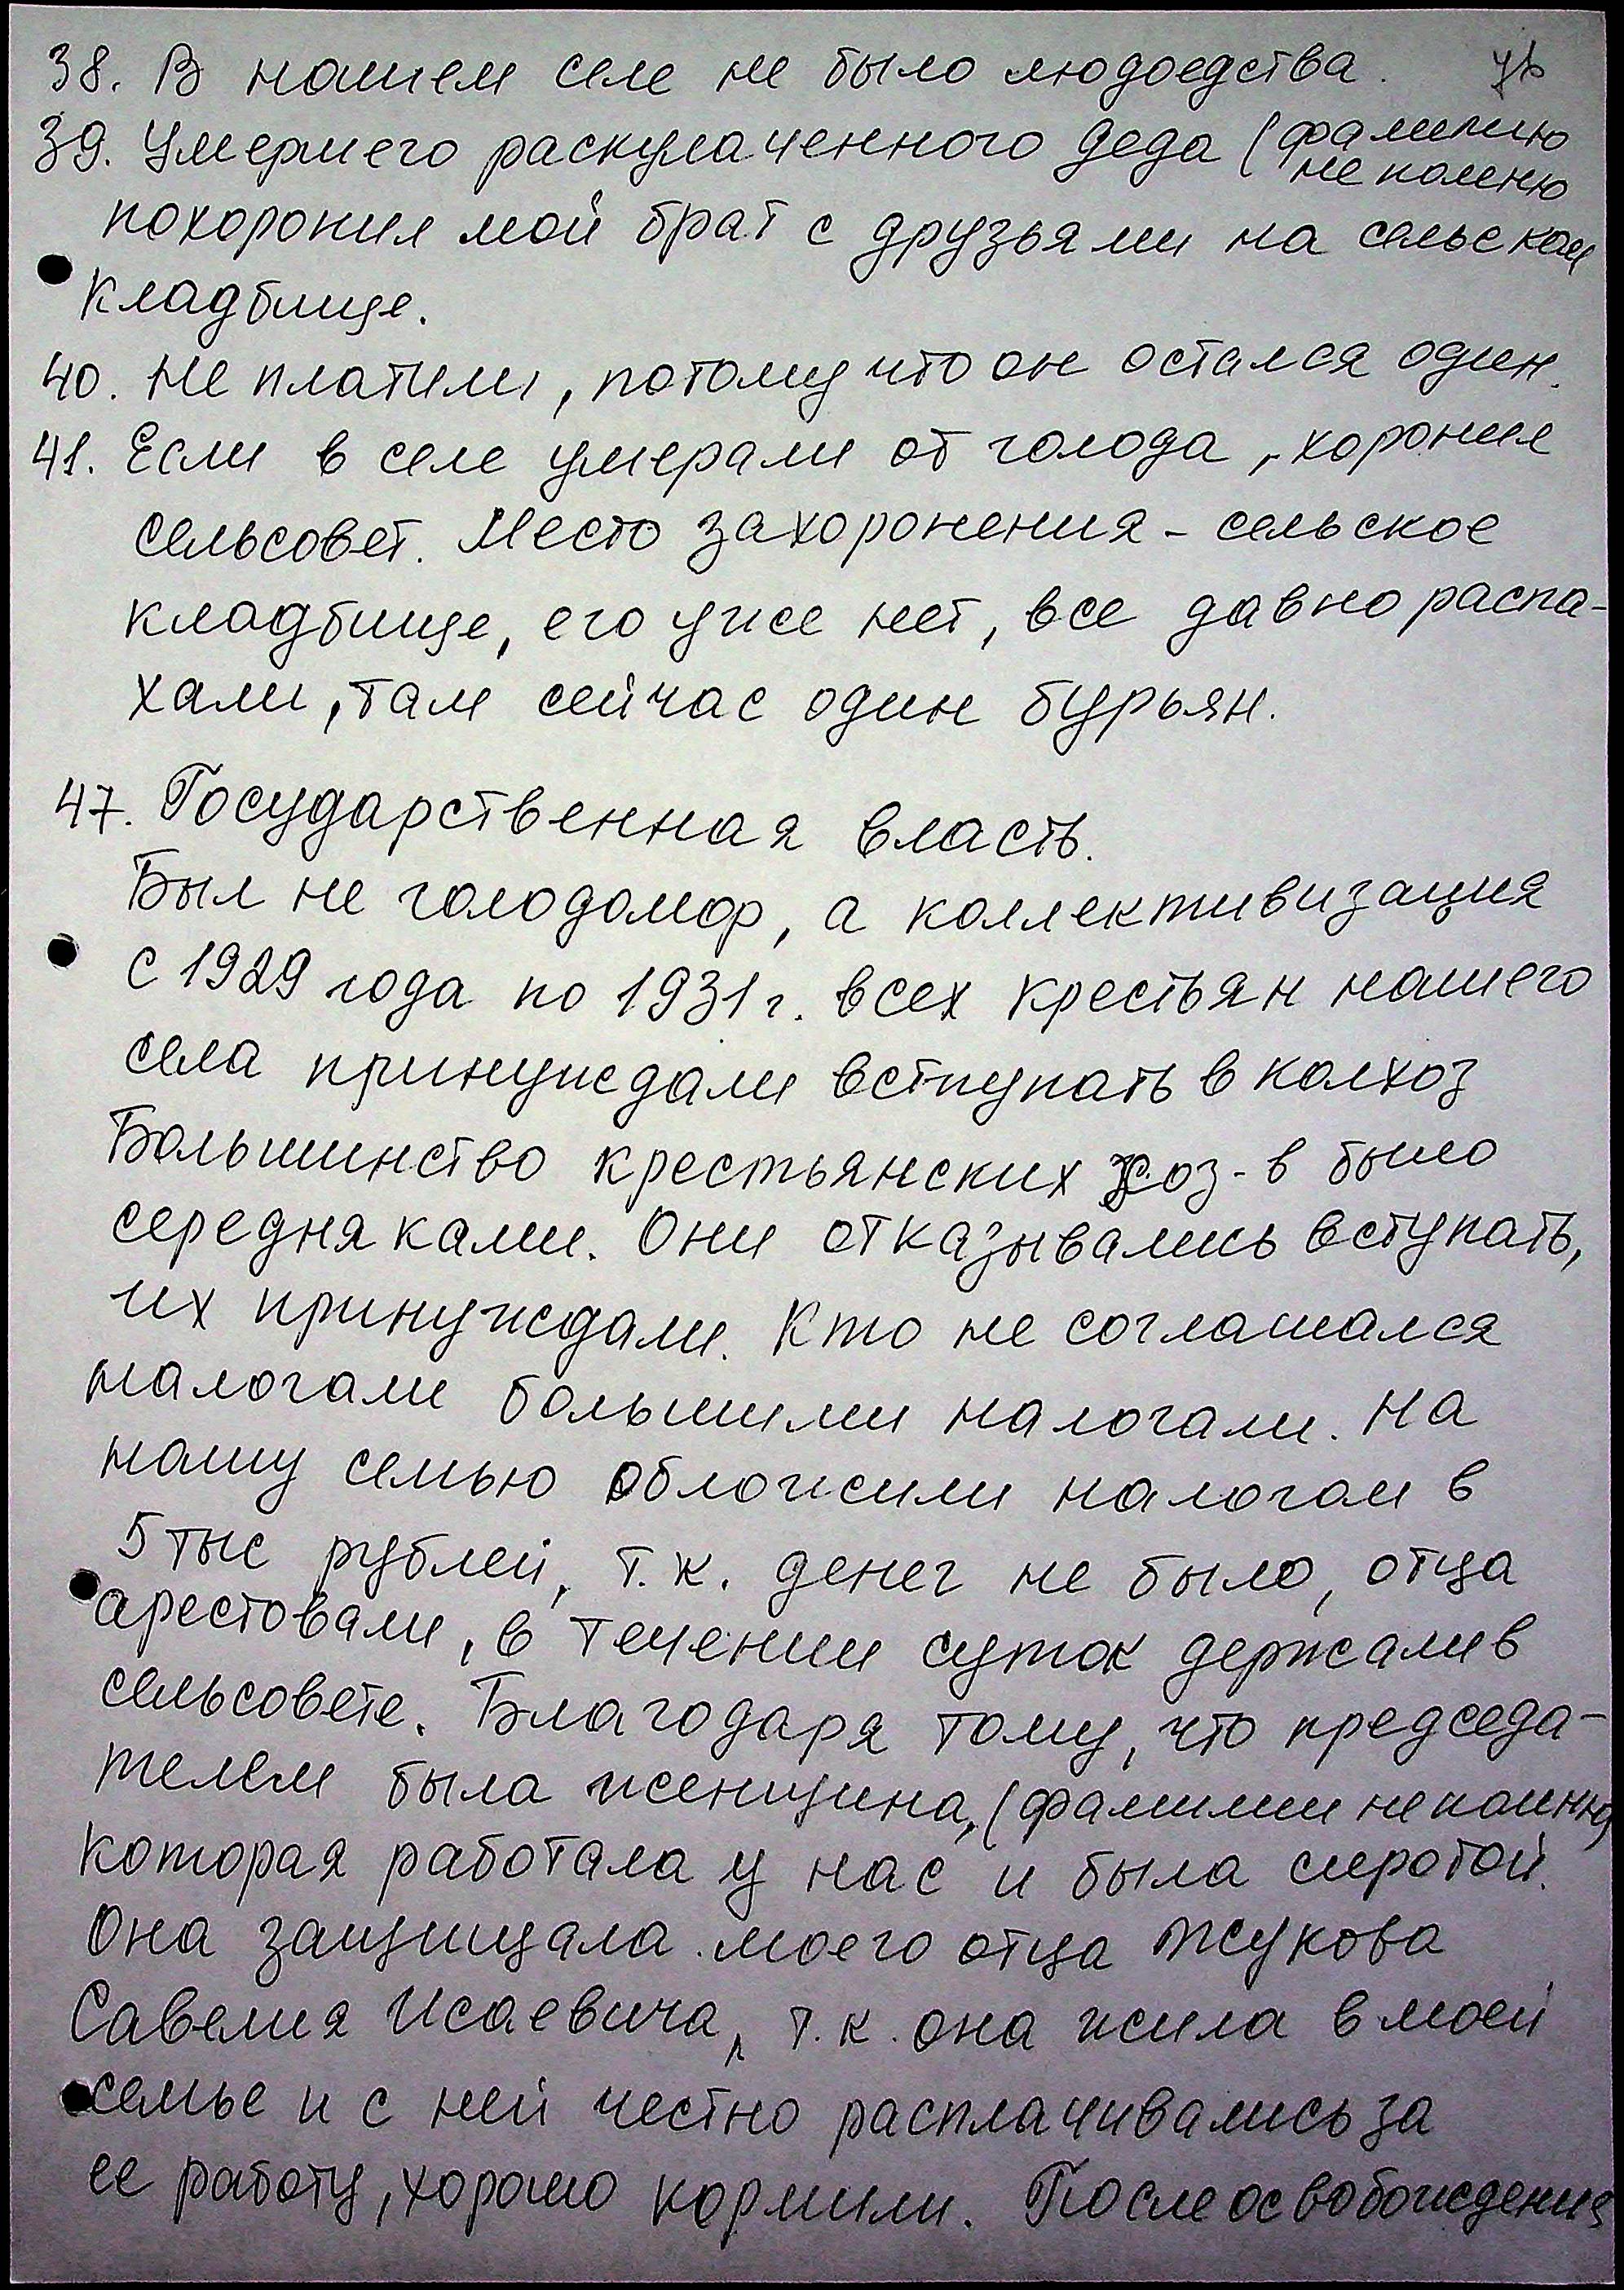 38. В нашем селе не было людоедства.
39. Умершего раскулаченного деда (фамилию
не помню
похоронил мой брат с друзьями на сельском
кладбище.
40. Не платили, потому что он остался один.
41. Если в селе умерали от голода, хоронил
сельсовет. Место захоронения - сельское
кладбище, его уже нет, все давно распа-
хали, там сейчас один бурьян.
47. Государственная власть.
Был не голодомор, а коллективизация
с 1929 года по 1931 г. всех крестьян нашего
села принуждали вступать в колхоз
Большинство крестьянских хоз-в было
середняками. Они отказывались вступать,
их принуждали. Кто не соглашался
налогами большими налогами. На
нашу семью обложили налогом в
5 тыс рублей, т.к. денег не было, отца
арестовали, в течении суток держали в
сельсовете. Благодаря тому, что председа-
телем была женщина, (фамилии не помню)
которая работала у нас и была сиротой.
Она защищала моего отца Жукова
Савелия Исаевича, т.к. она жила в моей
семье и с ней честно расплачивались за
ее работу, хорошо кормили. После освобождения